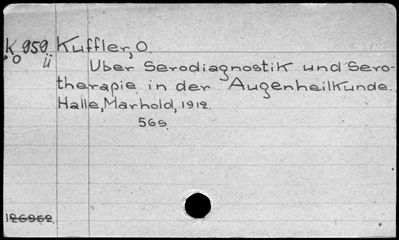 K 959 Kuffler, O.
o ü
Über Serodiagnostik und Sero-
therapie in der Augenheilkunde.
Halle, Marhold, 1912.
56s.
126962